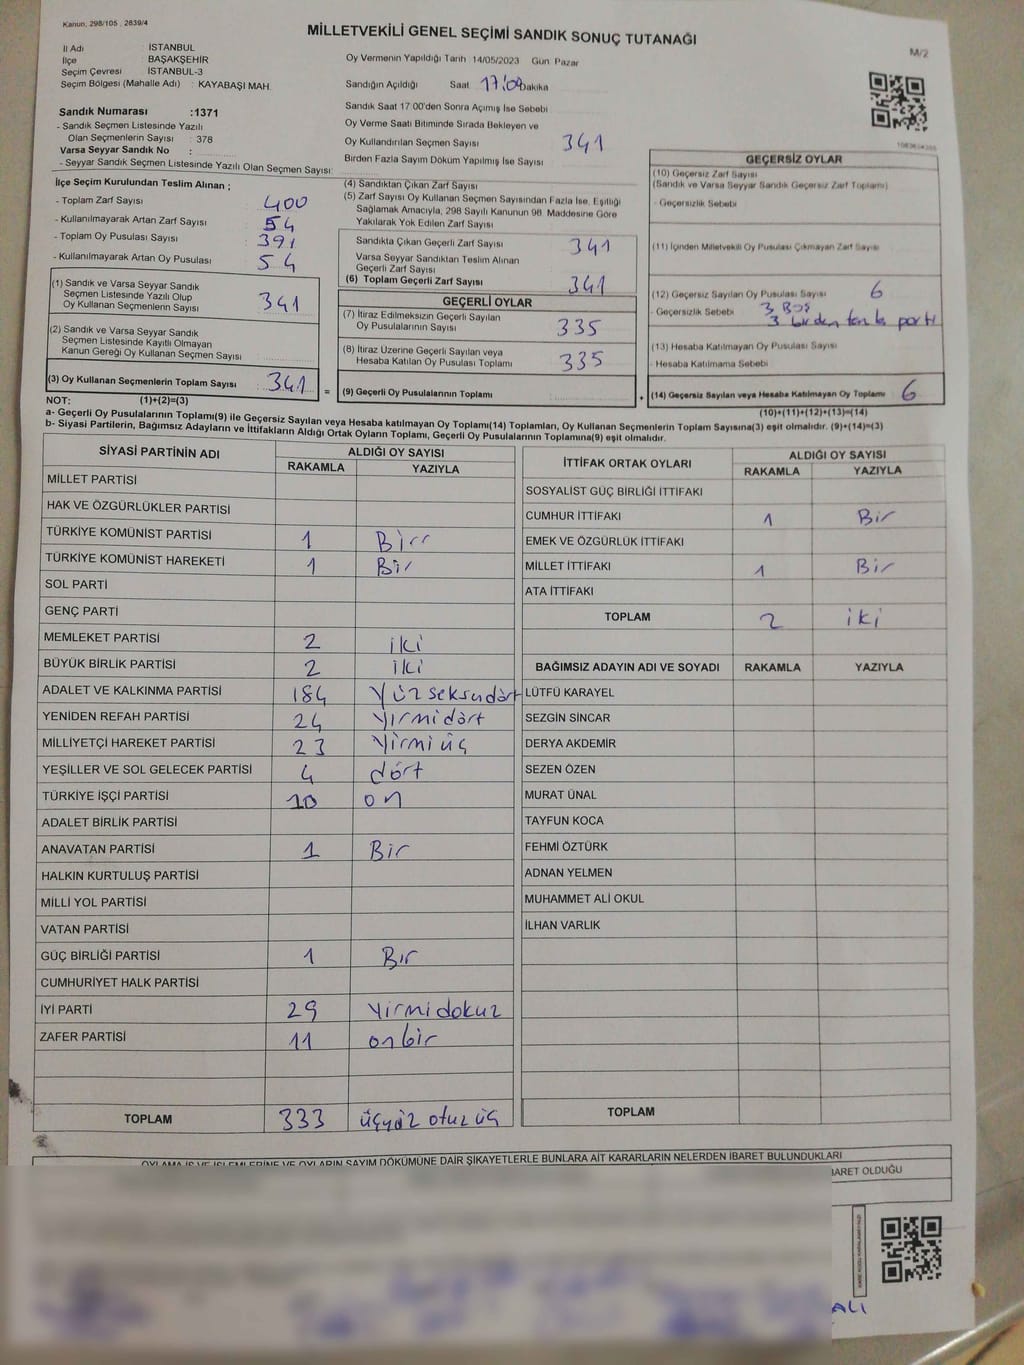 Kanun; 298/105 , 2839/4
MİLLETVEKİLİ GENEL SEÇİMİ SANDIK SONUÇ TUTANAĞI
M/2
İl Adı : İSTANBUL
İlçe : BAŞAKŞEHİR
Seçim Çevresi : İSTANBUL-3
Seçim Bölgesi (Mahalle Adı) : KAYABAŞI MAH.
Sandık Numarası :1371
- Sandık Seçmen Listesinde Yazılı
Olan Seçmenlerin Sayısı : 378
Varsa Seyyar Sandık No :
- Seyyar Sandık Seçmen Listesinde Yazılı Olan Seçmen Sayısı:
Oy Vermenin Yapıldığı Tarih 14/05/2023 Gün Pazar
Sandığın Açıldığı Saat 17:09 Dakika
Sandık Saat 17:00'den Sonra Açımış İse Sebebi
Oy Verme Saati Bitiminde Sırada Bekleyen ve
Oy Kullandırılan Seçmen Sayısı 341
Birden Fazla Sayım Döküm Yapılmış İse Sayısı
İlçe Seçim Kurulundan Teslim Alınan ;
- Toplam Zarf Sayısı 400
- Kullanılmayarak Artan Zarf Sayısı 54
- Toplam Oy Pusulası Sayısı 391
- Kullanılmayarak Artan Oy Pusulası 54
(1) Sandık ve Varsa Seyyar Sandık
Seçmen Listesinde Yazılı Olup
Oy Kullanan Seçmenlerin Sayısı 341
(2) Sandık ve Varsa Seyyar Sandık
Seçmen Listesinde Kayıtlı Olmayan
Kanun Gereği Oy Kullanan Seçmen Sayısı
(3) Oy Kullanan Seçmenlerin Toplam Sayısı 341 =
(4) Sandıktan Çıkan Zarf Sayısı
(5) Zarf Sayısı Oy Kullanan Seçmen Sayısından Fazla İse, Eşitliği
Sağlamak Amacıyla, 298 Sayılı Kanunun 98. Maddesine Göre
Yakılarak Yok Edilen Zarf Sayısı
Sandıkta Çıkan Geçerli Zarf Sayısı 341
Varsa Seyyar Sandıktan Teslim Alınan
Geçerli Zarf Sayısı
(6) Toplam Geçerli Zarf Sayısı 341
GEÇERLİ OYLAR
(7) İtiraz Edilmeksizin Geçerli Sayılan
Oy Pusulalarının Sayısı 335
(8) İtiraz Üzerine Geçerli Sayılan veya
Hesaba Katılan Oy Pusulası Toplamı 335
(9) Geçerli Oy Pusulalarının Toplamı +
GEÇERSİZ OYLAR
(10) Geçersiz Zarf Sayısı
(Sandık ve Varsa Seyyar Sandık Geçersiz Zarf Toplamı)
- Geçersizlik Sebebi
(11) İçinden Milletvekili Oy Pusulası Çıkmayan Zarf Sayısı
(12) Geçersiz Sayılan Oy Pusulası Sayısı 6
- Geçersizlik Sebebi 3 Boş
3 birden fazla parti
(13) Hesaba Katılmayan Oy Pusulası Sayısı
- Hesaba Katılmama Sebebi
(14) Geçersiz Sayılan veya Hesaba Katılmayan Oy Toplamı 6
NOT: (1)+(2)=(3) (10)+(11)+(12)+(13)=(14)
a- Geçerli Oy Pusulalarının Toplamı(9) ile Geçersiz Sayılan veya Hesaba katılmayan Oy Toplamı(14) Toplamları, Oy Kullanan Seçmenlerin Toplam Sayısına(3) eşit olmalıdır. (9)+(14)=(3)
b- Siyasi Partilerin, Bağımsız Adayların ve İttifakların Aldığı Ortak Oyların Toplamı, Geçerli Oy Pusulalarının Toplamına(9) eşit olmalıdır.
SİYASİ PARTİNİN ADI ALDIĞI OY SAYISI
RAKAMLA YAZIYLA
MİLLET PARTİSİ
HAK VE ÖZGÜRLÜKLER PARTİSİ
TÜRKİYE KOMÜNİST PARTİSİ 1 Birr
TÜRKİYE KOMÜNİST HAREKETİ 1 Bir
SOL PARTİ
GENÇ PARTİ
MEMLEKET PARTİSİ 2 iki
BÜYÜK BİRLİK PARTİSİ 2 iki
ADALET VE KALKINMA PARTİSİ 184 Yüzseksndört
YENİDEN REFAH PARTİSİ 24 Yirmidört
MİLLİYETÇİ HAREKET PARTİSİ 23 Yirmi üç
YEŞİLLER VE SOL GELECEK PARTİSİ 4 dört
TÜRKİYE İŞÇİ PARTİSİ 10 on
ADALET BİRLİK PARTİSİ
ANAVATAN PARTİSİ 1 Bir
HALKIN KURTULUŞ PARTİSİ
MİLLİ YOL PARTİSİ
VATAN PARTİSİ
GÜÇ BİRLİĞİ PARTİSİ 1 Bır
CUMHURİYET HALK PARTİSİ
İYİ PARTİ 29 Yirmidokuz
ZAFER PARTİSİ 11 onbir
TOPLAM 333 üçyüz otuz üç
İTTİFAK ORTAK OYLARI ALDIĞI OY SAYISI
RAKAMLA YAZIYLA
SOSYALİST GÜÇ BİRLİĞİ İTTİFAKI
CUMHUR İTTİFAKI 1 Bir
EMEK VE ÖZGÜRLÜK İTTİFAKI
MİLLET İTTİFAKI 1 Bir
ATA İTTİFAKI
TOPLAM 2 iki
BAĞIMSIZ ADAYIN ADI VE SOYADI RAKAMLA YAZIYLA
LÜTFÜ KARAYEL
SEZGİN SİNCAR
DERYA AKDEMİR
SEZEN ÖZEN
MURAT ÜNAL
TAYFUN KOCA
FEHMİ ÖZTÜRK
ADNAN YELMEN
MUHAMMET ALİ OKUL
İLHAN VARLIK
TOPLAM
OYLAMA İŞ VE İŞLEMLERİNE VE OYLARIN SAYIM DÖKÜMÜNE DAİR ŞİKAYETLERLE BUNLARA AİT KARARLARIN NELERDEN İBARET BULUNDUKLARI
İBARET OLDUĞU
ALİ